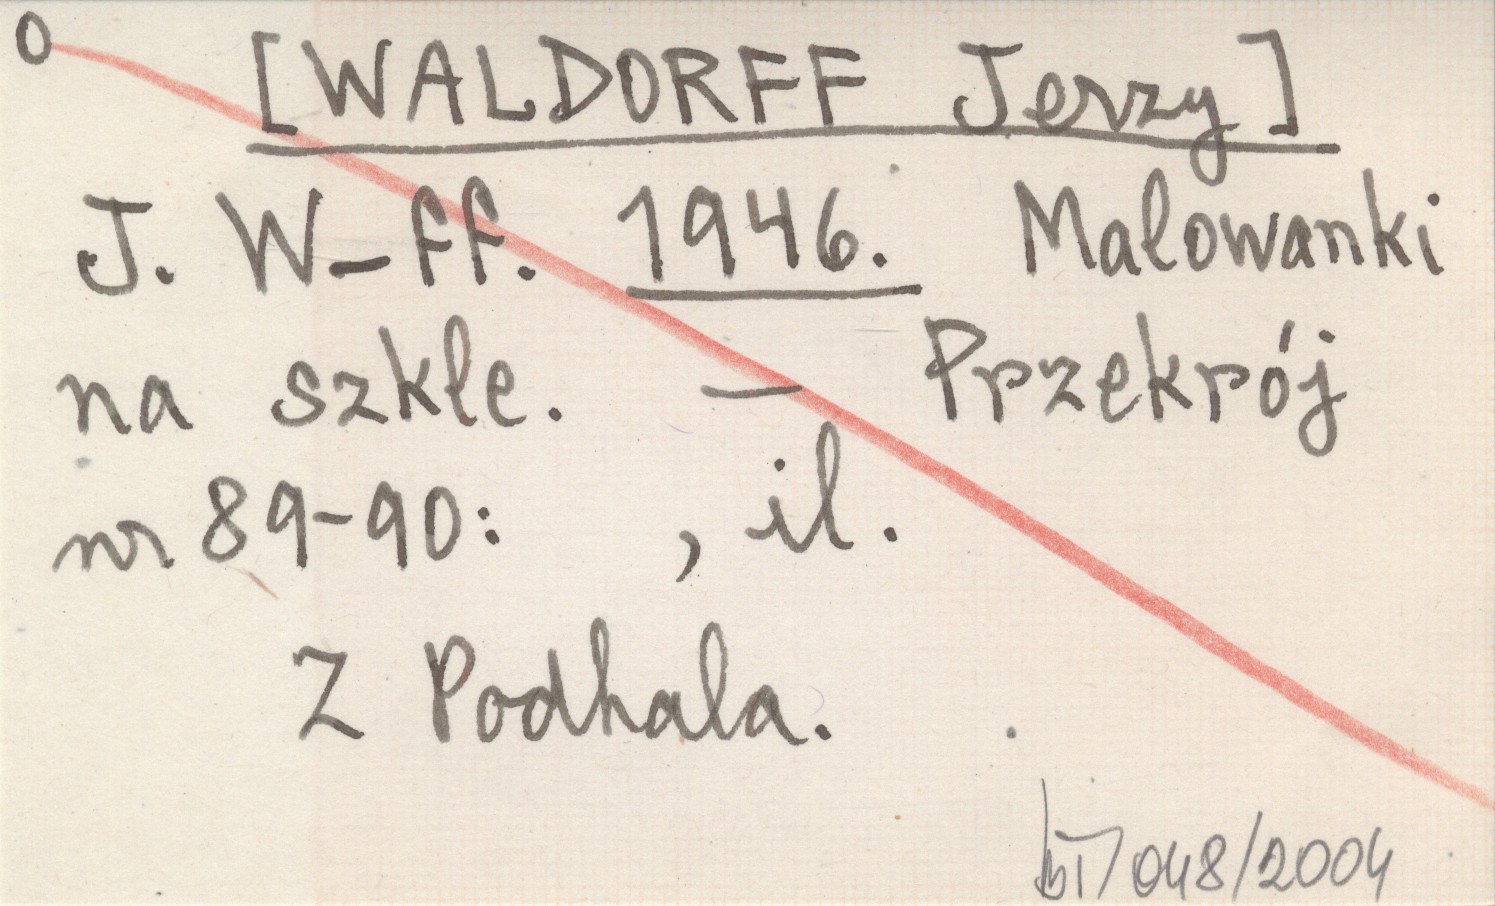 0
[WALDORFF Jerzy]
J. W-ff. 1946. Malowanki
na szkle. — Przekrój
nr 89-90: , il.
Z Podhala.
048/2004